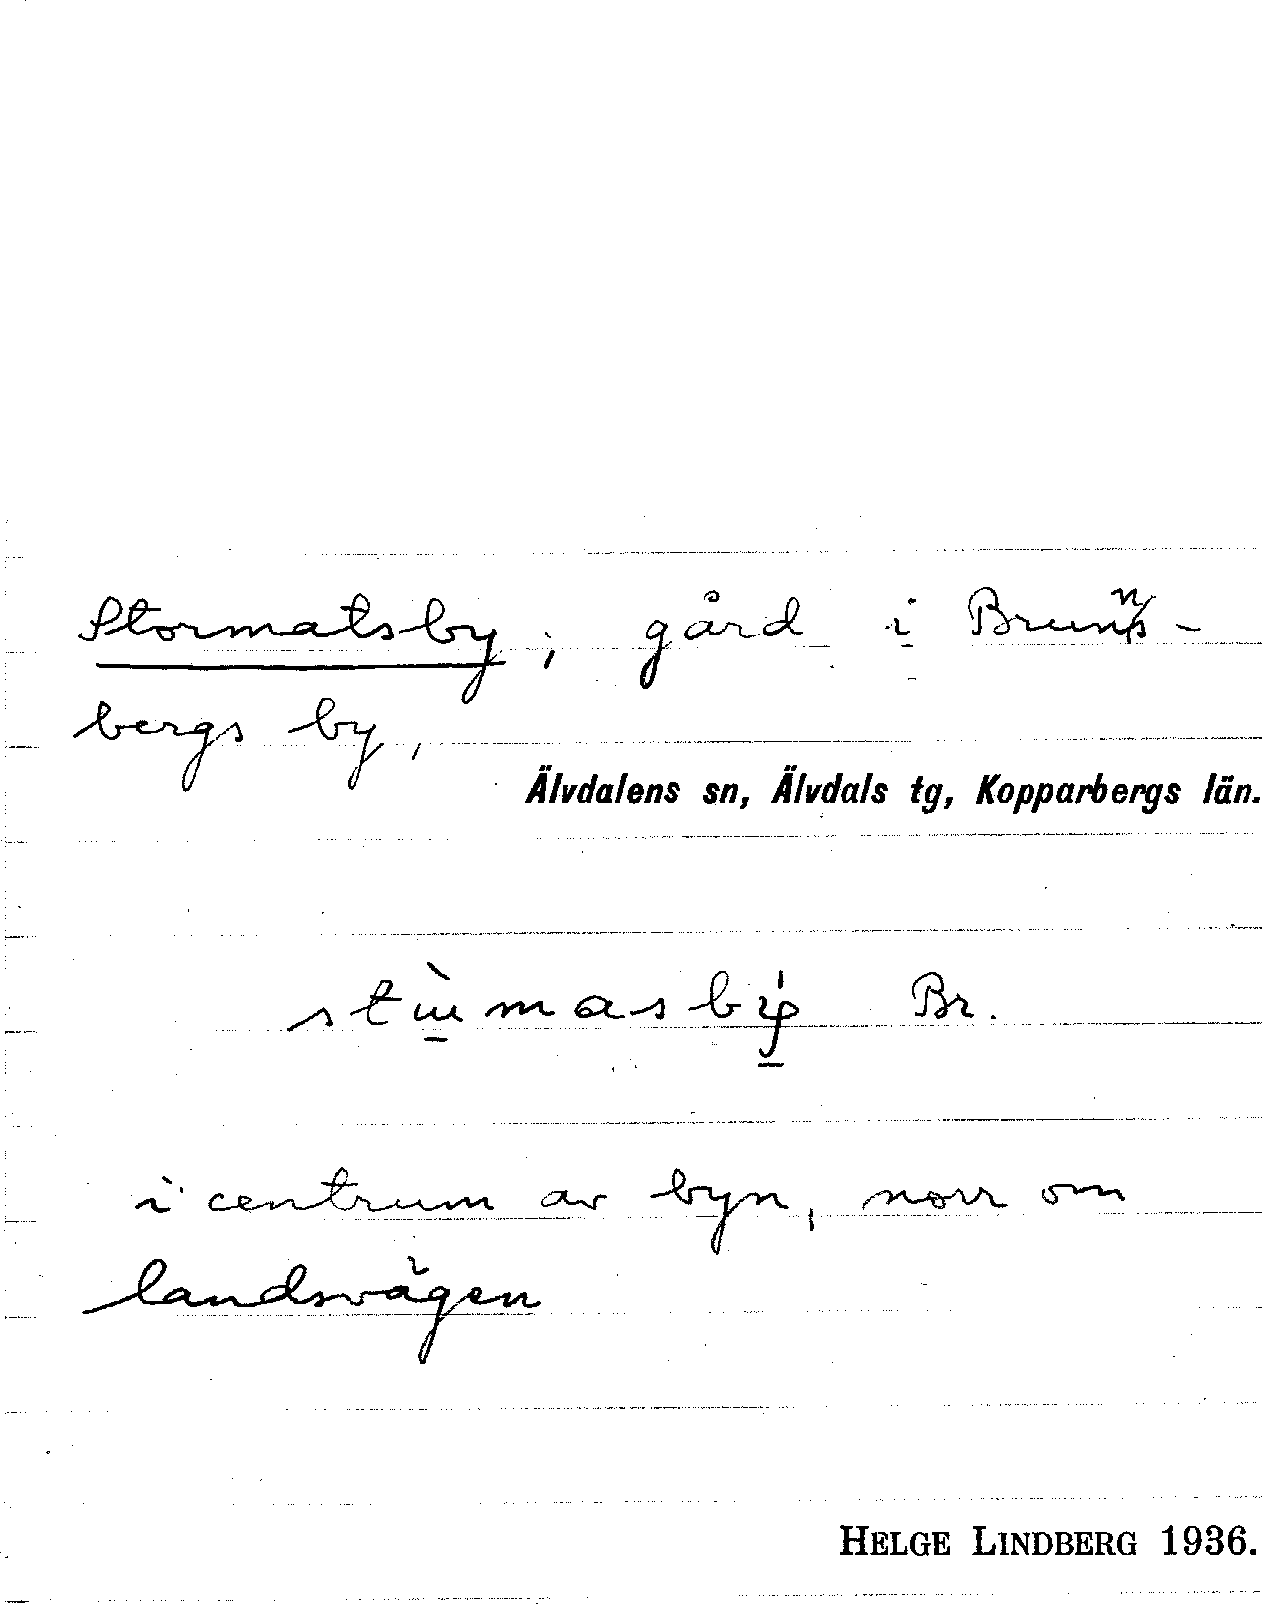 Stormatsby, gård i Brunn-
bergs by,
Älvdalens sn, Älvdals tg, Kopparbergs län.
Br.
i centrum av byn, norr om
landsvägen
HELGE LINDBERG 1936.